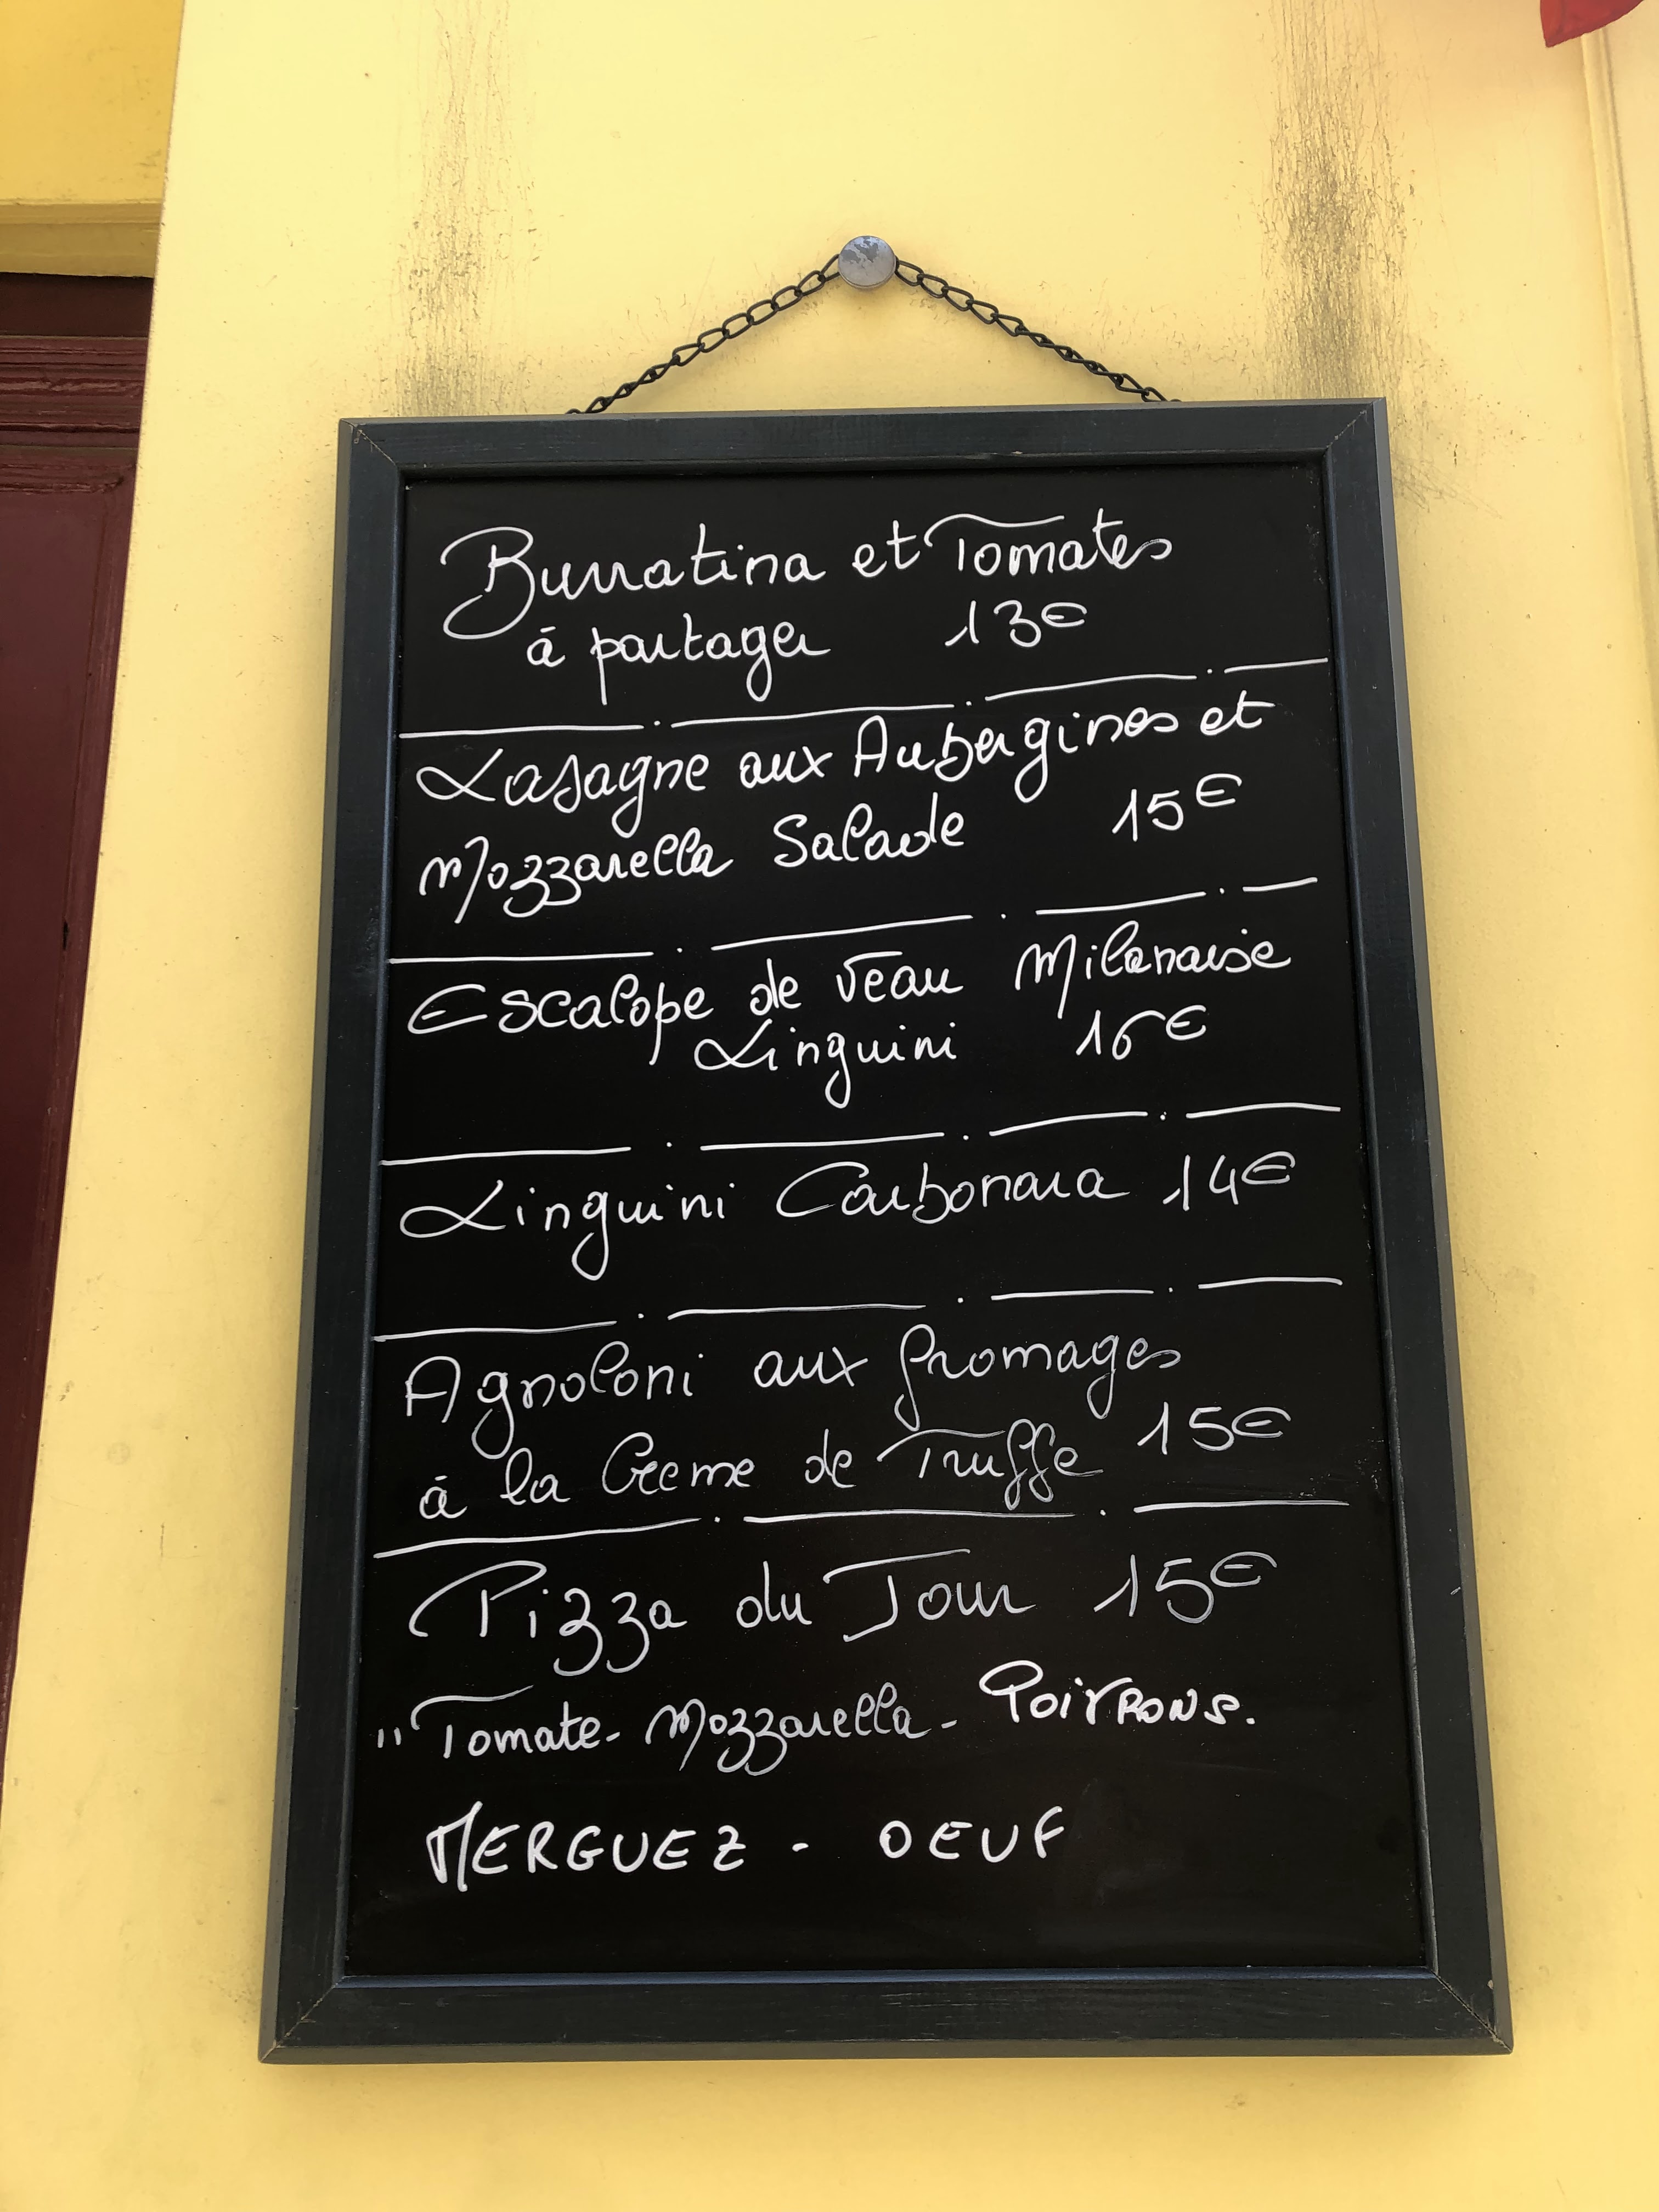 Burratina et Tomates
à partager 13€
Lasagne aux Aubergines et
Mozzarella Salade 15€
Escalope de Veau Milanaise
Linguini 16€
Linguini Carbonara 14€
Agnoloni aux fromages
à la Creme de Truffe 15€
Pizza du Jour 15€
"Tomate - Mozzarella - POIVRONS.
MERGUEZ - OEUF